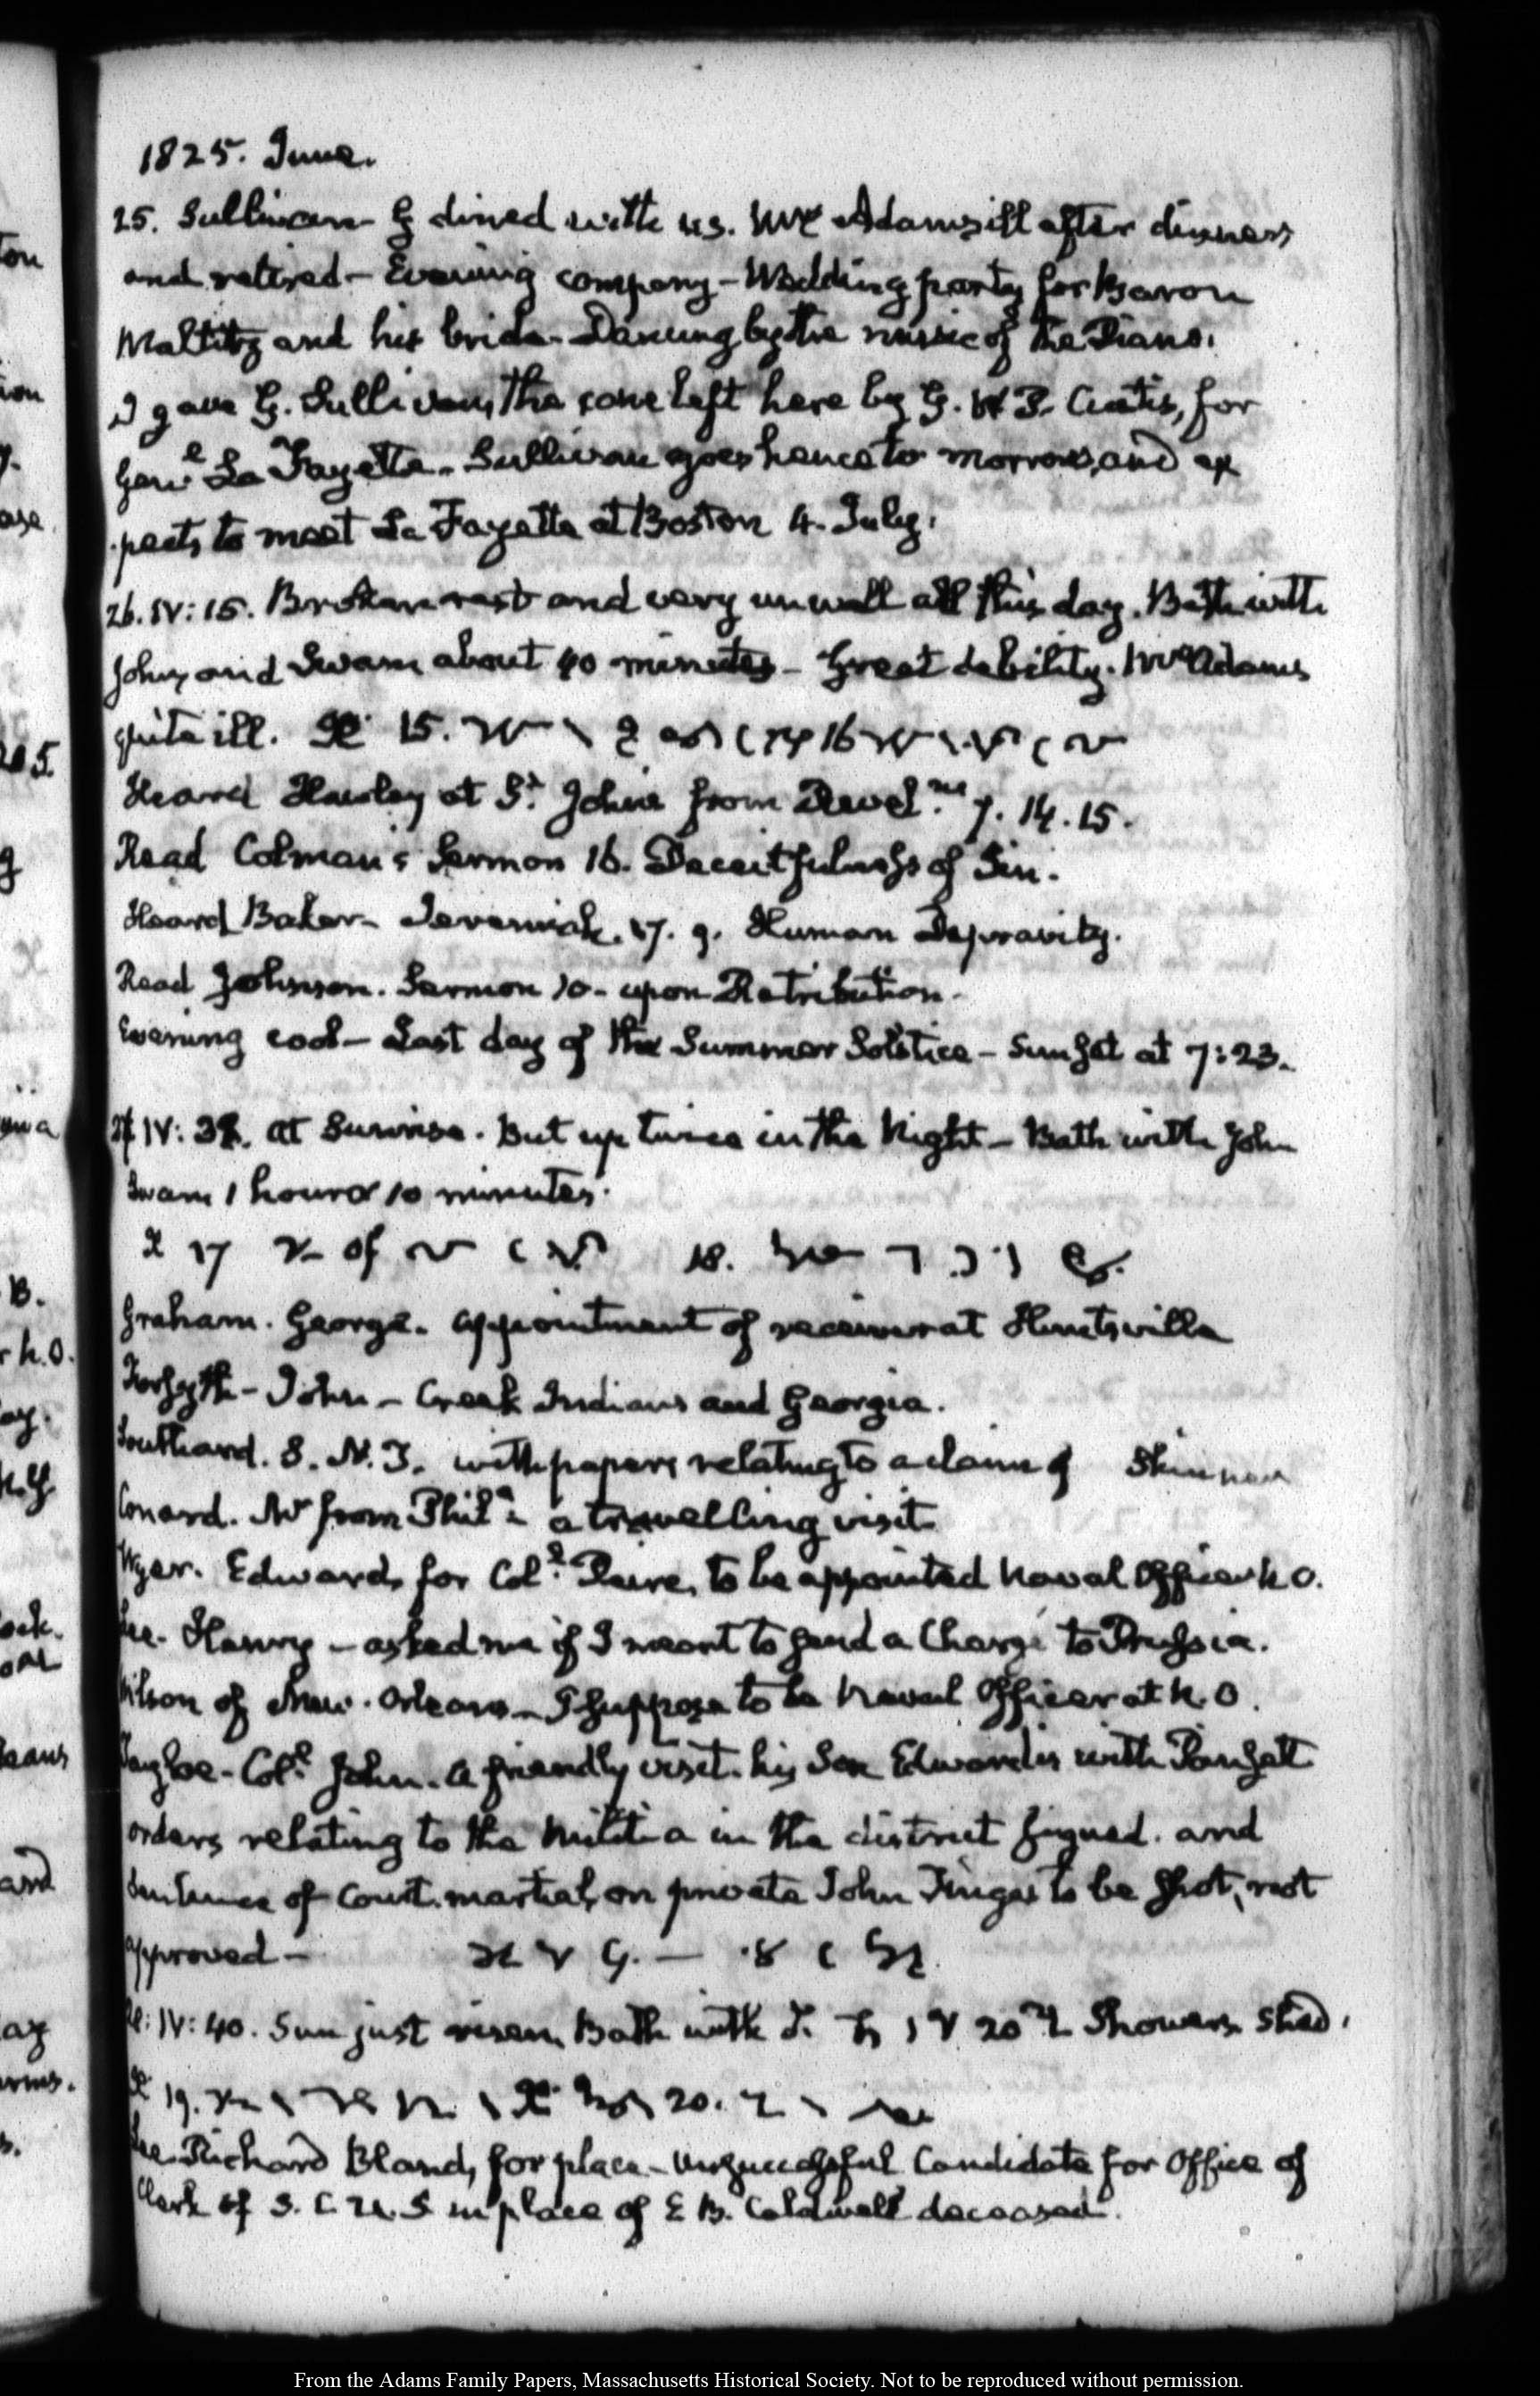 1825. June.
25. Sullivan G dined with us. Mrs Adams ill after dinner
and retired – Evening company – Wedding party for Baron
Maltitz and his bride – Dancing by the music of the Piano.
I gave G. Sullivan, the cane left here by G. W P. Custis, for
Genl La Fayette. Sullivan goes hence to morrow, and ex
pects to meet La Fayette at Boston 4. July.
26. IV: 15. Broken rest and very unwell all this day. Bath with
John, and Swam about 40 minutes – Great debility. Mrs Adams
quite ill. 15. 16
Heard Hawley at St. John's from Revel.ns 7. 14. 15.
Read Colman's Sermon 16. Deceitfulness of Sin.
Heard Baker – Jeremiah. 17. 9. Human Depravity.
Read Johnson. Sermon 10 – upon Retribution –
Evening cool – Last day of the Summer Solstice – Sun set at 7:23.
27 IV: at Sunrise. But up twice in the Night – Bath with John
Swam 1 hour 10 minutes.
17 of 18.
Graham. George. appointment of receiver at Huntsville
Forsyth – John – Creek Indians and Georgia.
Southard. S. with papers relating to a claim of Skinner
Conard. Mr from Phila – a travelling visit
Wyer. Edward, for Coll. to be appointed Naval Officer N O.
Lee. Henry – asked me if I meant to send a Chargé to Prussia.
Wilson of New. Orleans – I suppose to be Naval Officer at N. O.
Tayloe – Coll. John. a friendly visit. his Son Edward is with Poinsett
orders relating to the Militia in the district signed. and
Sentence of Court. martial, on private John to be shot, not
approved –
28: IV: 40. Sun just risen, Bath with J. 1 20 Showers
19. 20.
Lee. Richard Bland, for place – Unsuccessful Candidate for Office of
Clerk of S. C. U. S in place of E B. Caldwell deceased.